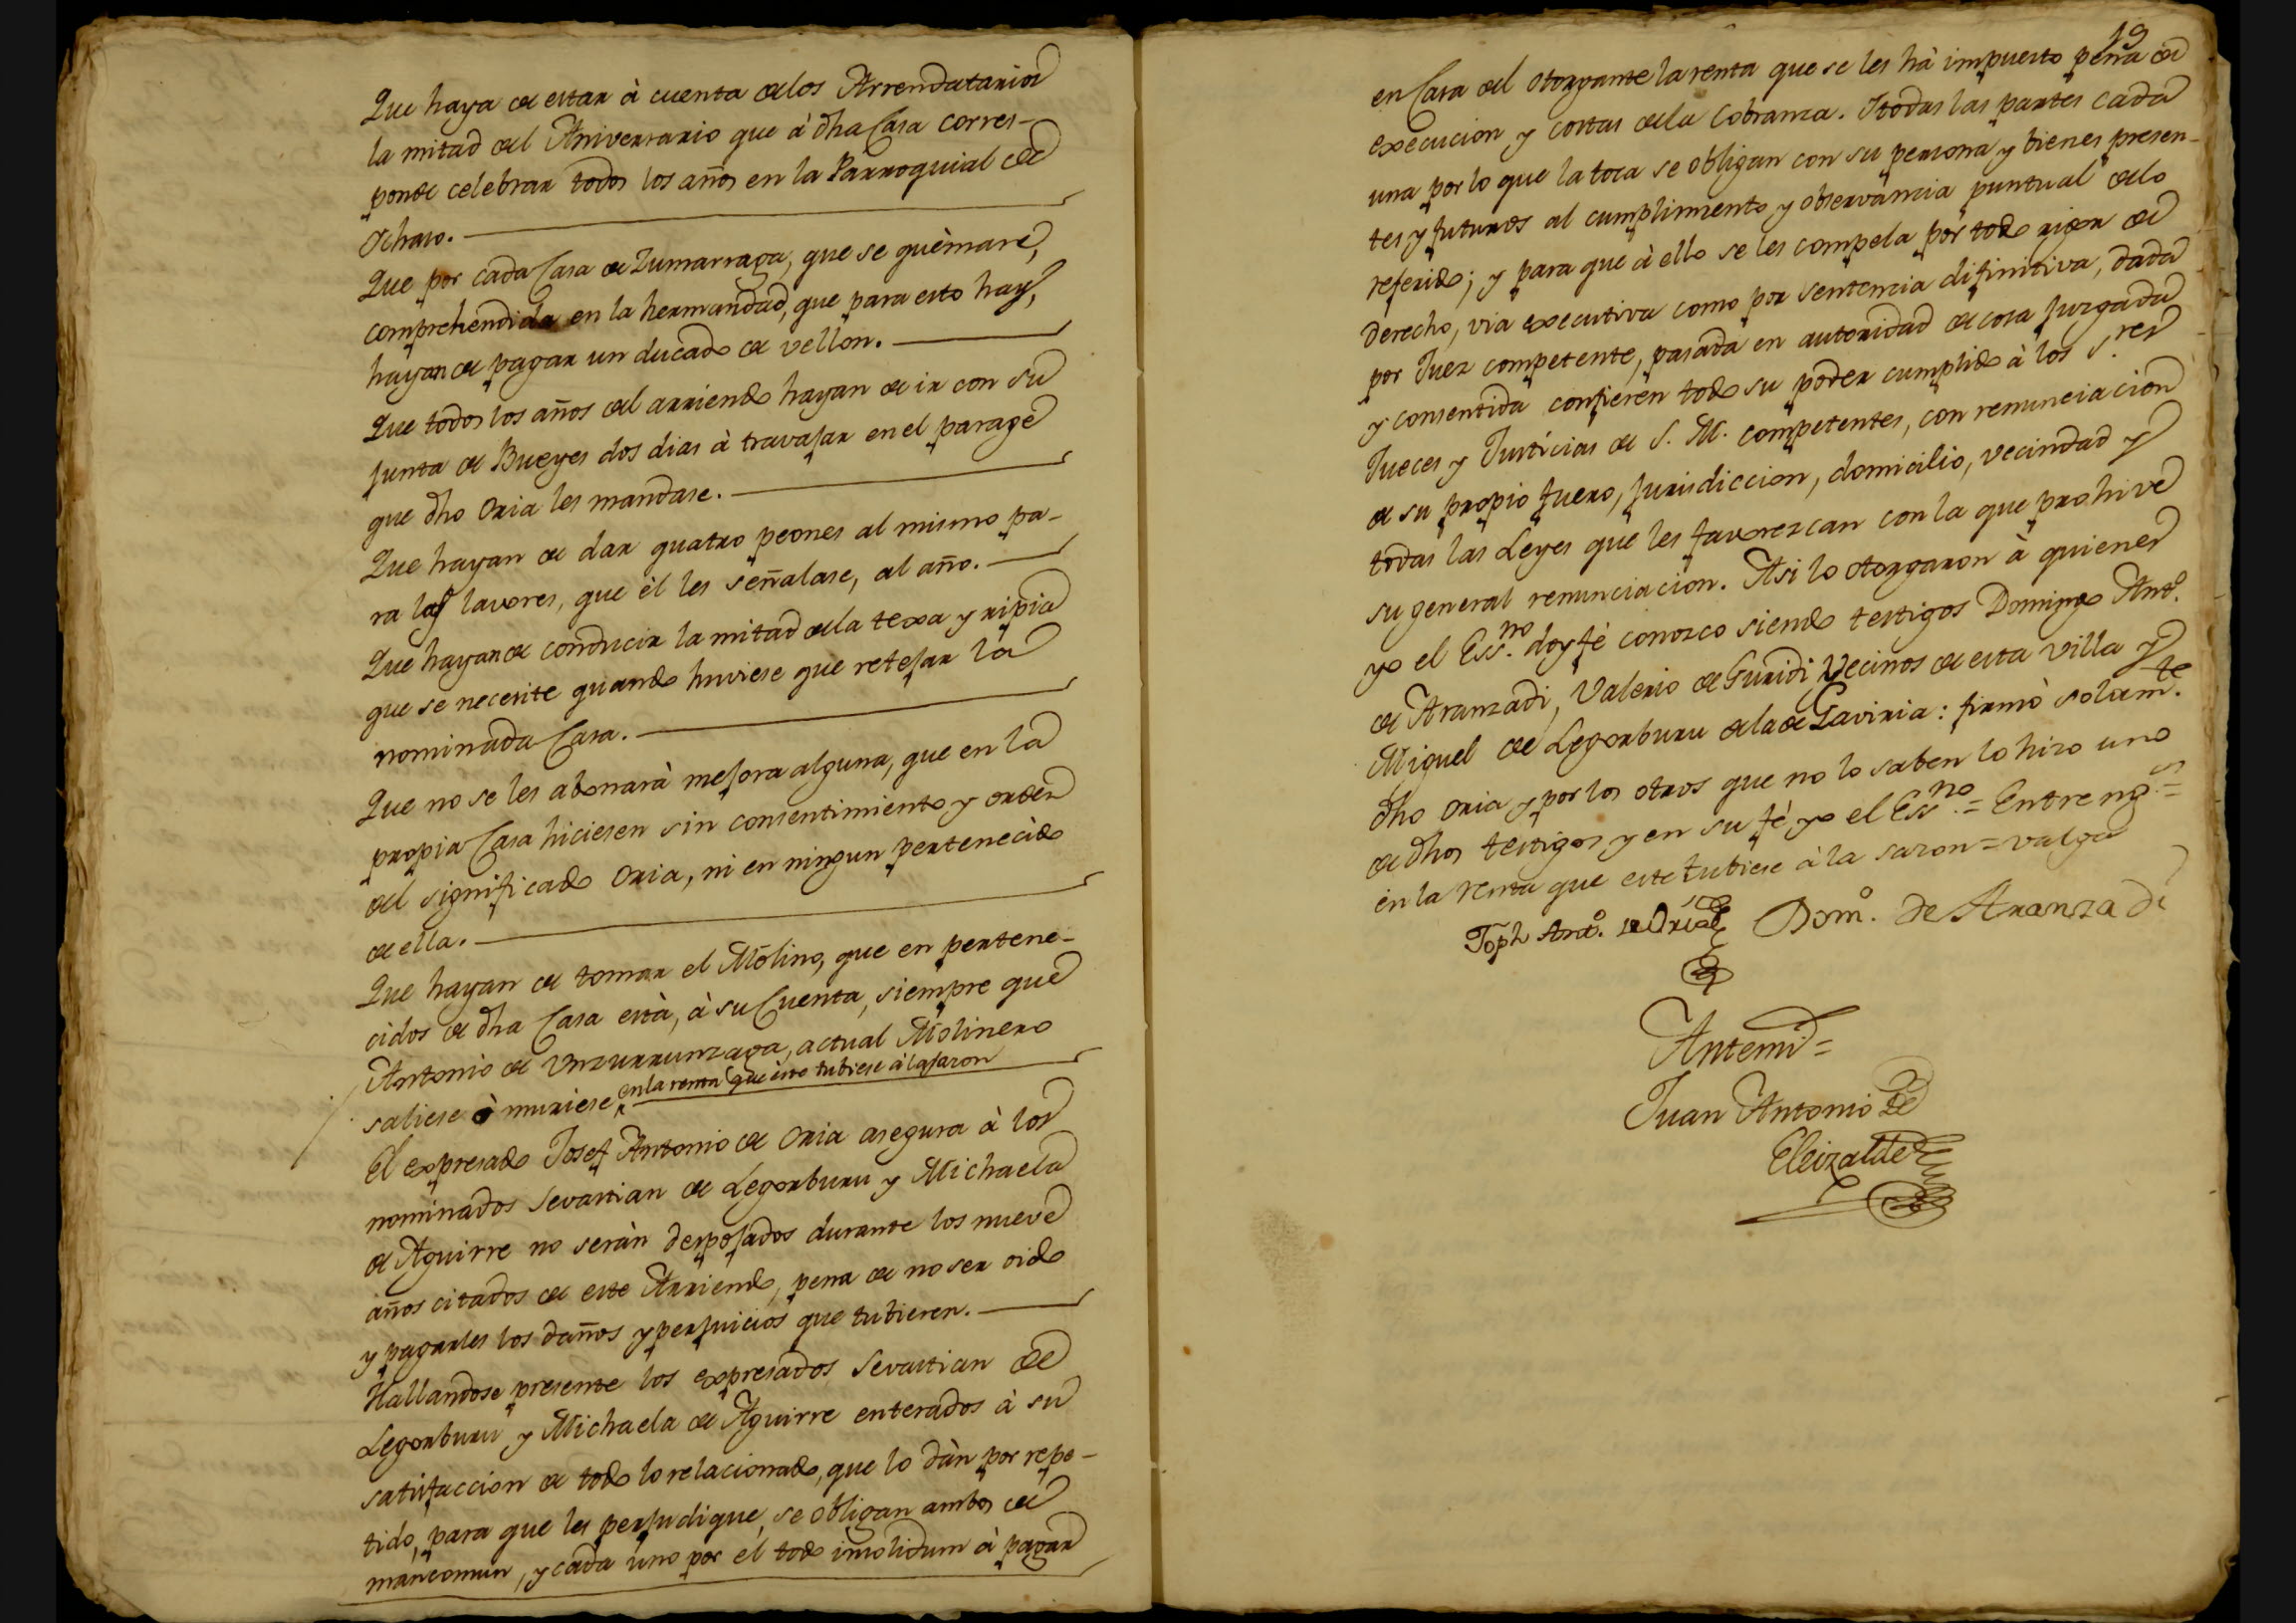 Que haya de estar à cuenta de los Arrendatarios
la mitad del Aniversario que à dha Casa corres-
ponde celebrar todos los años en la Parroquial de
Ochaso.
Que por cada Casa de Zumarraga, que se quèmare,
comprehendida en la hermandad, que para esto hay,
hayan de pagar un ducado de vellon.
Que todos los años del arriendo hayan de ir con su
junta de Bueyes dos dias à travajar en el parage
que dho Oria les mandase.
Que hayan de dar quatro peones al mismo pa-
ra las lavores, que èl les señalase, al año.
Que hayan de conducir la mitad de la texa y ripia
que se necesite quando huviese que retejar la
nominada Casa.
Que no se les abonarà mejora alguna, que en la
propia Casa hiciesen sin consentimiento y orden
del significado Oria, ni en ningun pertenecido
de ella.
Que hayan de tomar el Molino, que en pertene-
cidos de dha Casa està, à su Cuenta, siempre que
Antonio de Unzurrunzaga, actual Molinero
saliese ò muriese en la renta que este tubiese à la sazon
El expresado Josef Antonio de Oria asegura à los
nominados Sevastian de Legorburu y Michaela
de Aguirre no seràn despojados durante los nueve
años citados de este Arriendo, pena de no ser oido
y pagarles los daños y perjuicios que tubieren.
Hallandose presente los expresados Sevastian de
Legorburu y Michaela de Aguirre enterados à su
satisfaccion de todo lo relacionado, que lo dàn por repe-
tido, para que les perjudique, se obligan ambos de
mancomun, y cada uno por el todo insolidum à pagar
19
en Casa del otorgante la renta que se les hà impuesto pena de
execucion y costas de la Cobranza. I todas las partes cada
una por lo que la toca se obligan con su persona y bienes presen-
tes y futuros al cumplimiento y observancia puntual de lo
referido; y para que à ello se les compela por todo rigor de
derecho, via executiva como por sentencia difinitiva, dada
por Juez competente, pasada en autoridad de cosa juzgada
y consentida confieren todo su poder cumplido à los S.res
Jueces y Justicias de S. M. competentes, con renunciacion
de su propio fuero, jurisdiccion, domicilio, vecindad y
todas las Leyes que les favorezcan con la que prohive
su general renunciacion. Asi lo otorgaron à quienes
yo el Ess.no doy fé conozco siendo testigos Domingo Ant.o
de Aranzadi, Valerio de Guridi Vecinos de esta Villa y
Miguel de Legorburu de la de Gaviria: firmò solam.te
dho Oria y por los otros que no lo saben lo hizo uno
de dhos testigos y en su fé yo el Ess.no = Entre reng.s =
en la renta que este tubiese à la sazon = valga
Joph Ant.o de Oria Dom.o de Aranzadi
Antemi =
Juan Antonio de
Eleizalde